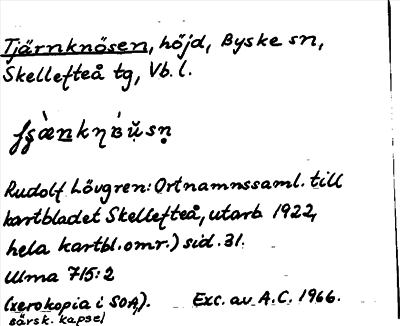 Tjärnknösen, höjd, Byske sn,
Skellefteå tg, Vb. l.
Rudolf Lövgren: Ortnamnssaml. till
kartbladet Skellefteå, utarb 1922,
hela kartbl.omr.) sid. 31.
Ulma 715:2
(xerokopia i SOA,). Exc. av A.C. 1966.
särsk. kapsel